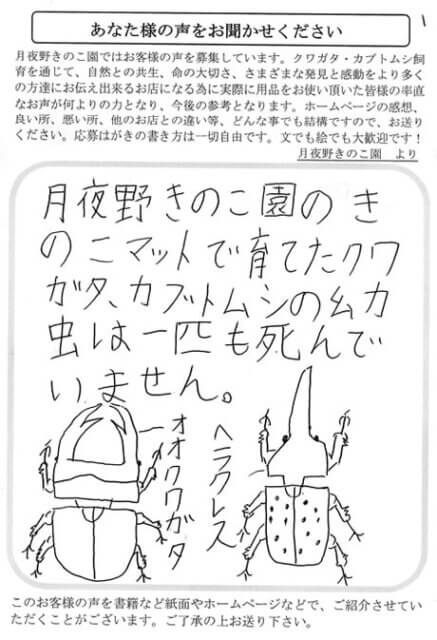 1
あなた様の声をお聞かせください
月夜野きのこ園ではお客様の声を募集しています。クワガタ・カブトムシ飼
育を通じて、自然との共生、命の大切さ、さまざまな発見と感動をより多く
の方達にお伝え出来るお店になる為に実際に用品をお使い頂いた皆様の率直
なお声が何よりの力となり、今後の参考となります。ホームページの感想、
良い所、悪い所、他のお店との違い等、どんな事でも結構ですので、お送り
ください。応募はがきの書き方は一切自由です。文でも絵でも大歓迎です！
月夜野きのこ園　より
月夜野きのこ園のき
のこマットで育てたクワ
ガタ、カブトムシの幼
虫は一匹も死んで
いません。
オオクワガタ
ヘラクレス
このお客様の声を書籍など紙面やホームページなどで、ご紹介させてい
ただくことがございます。ご了承の上お送り下さい。